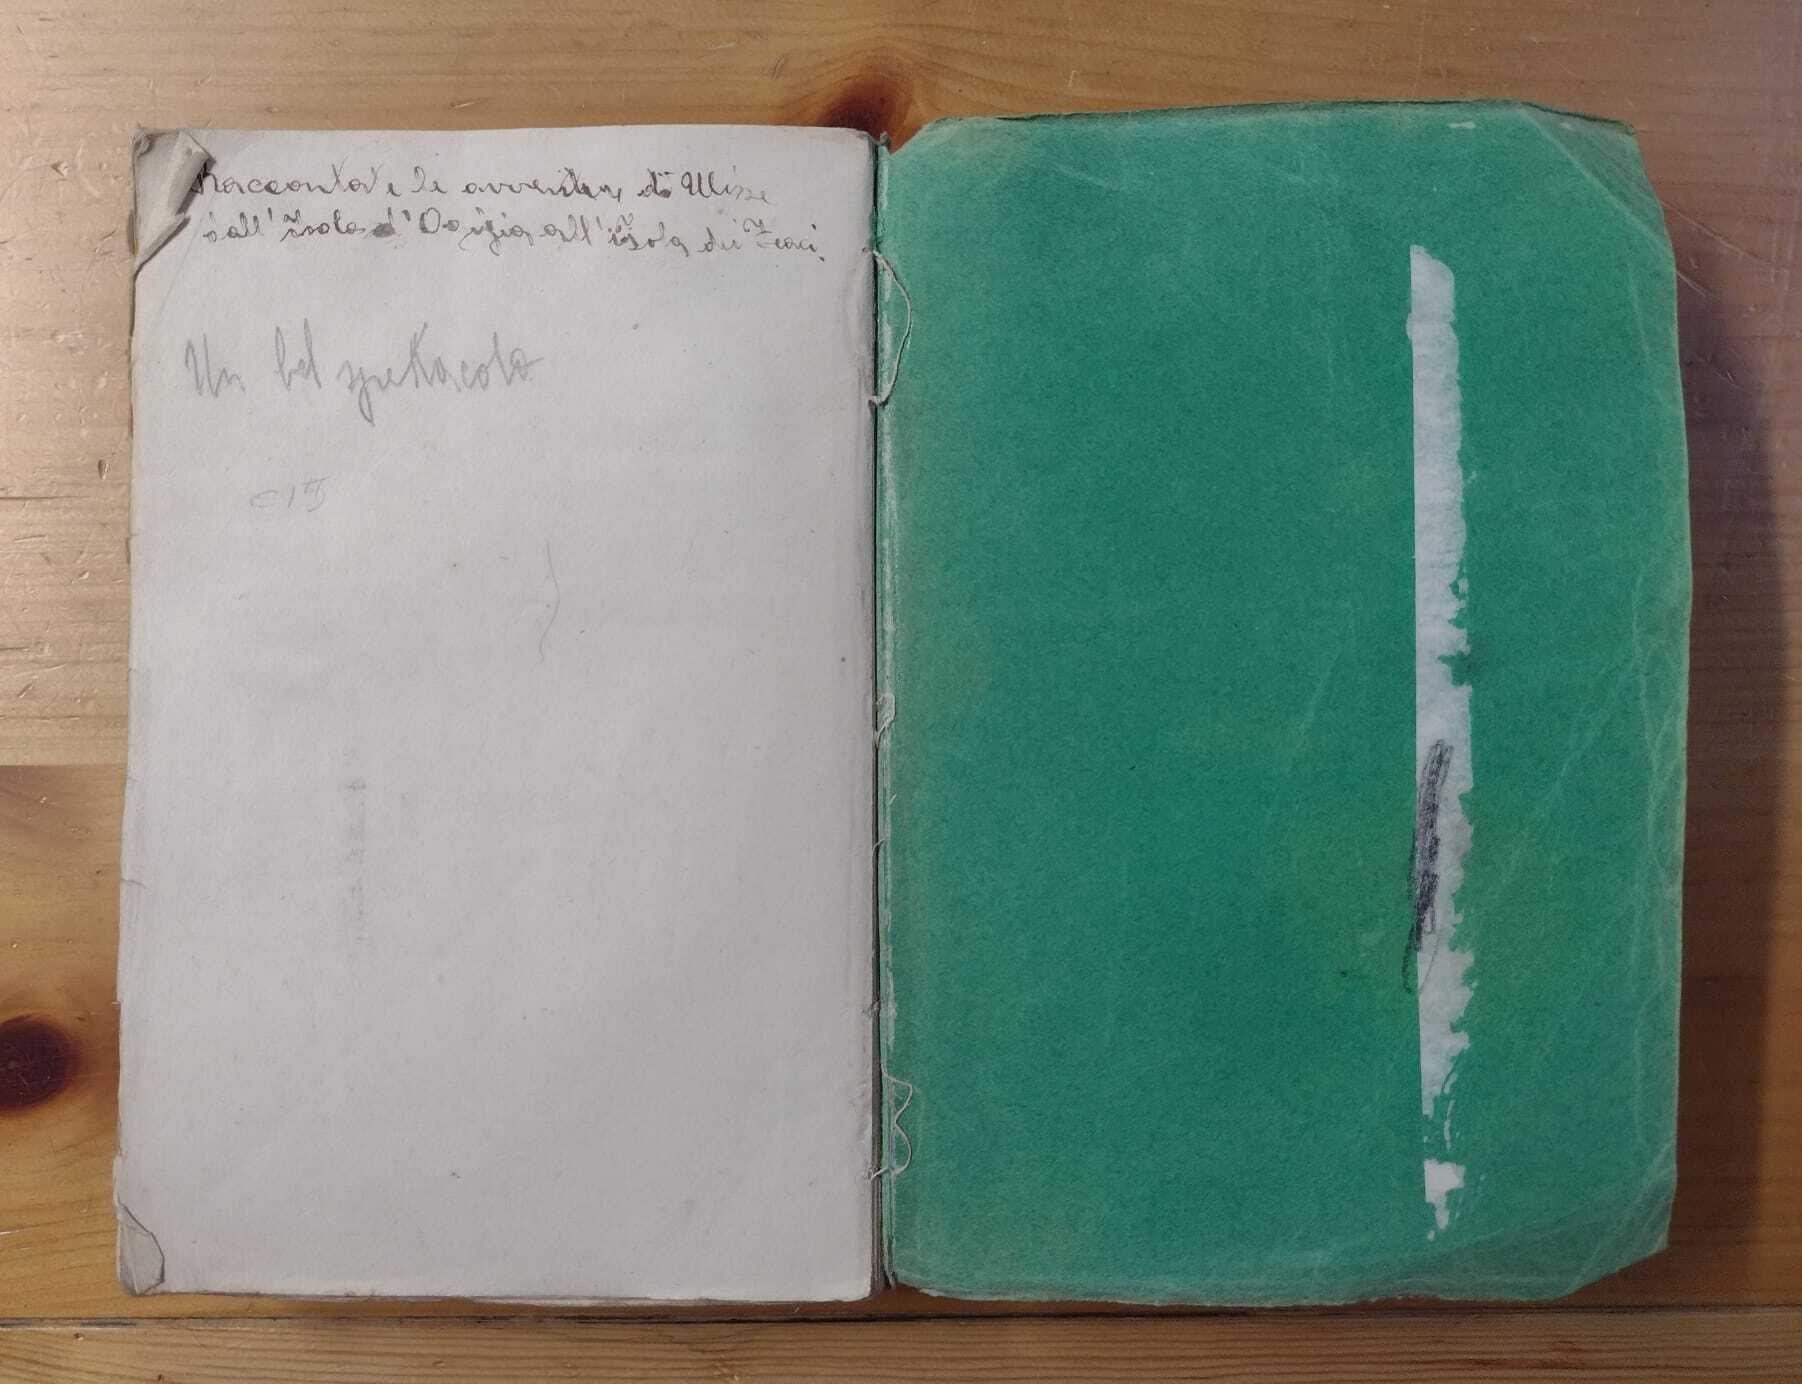 Raccontate le avventure di Ulisse
dall'Isola d'Ogigia all'Isola dei Feaci.
Un bel spettacolo